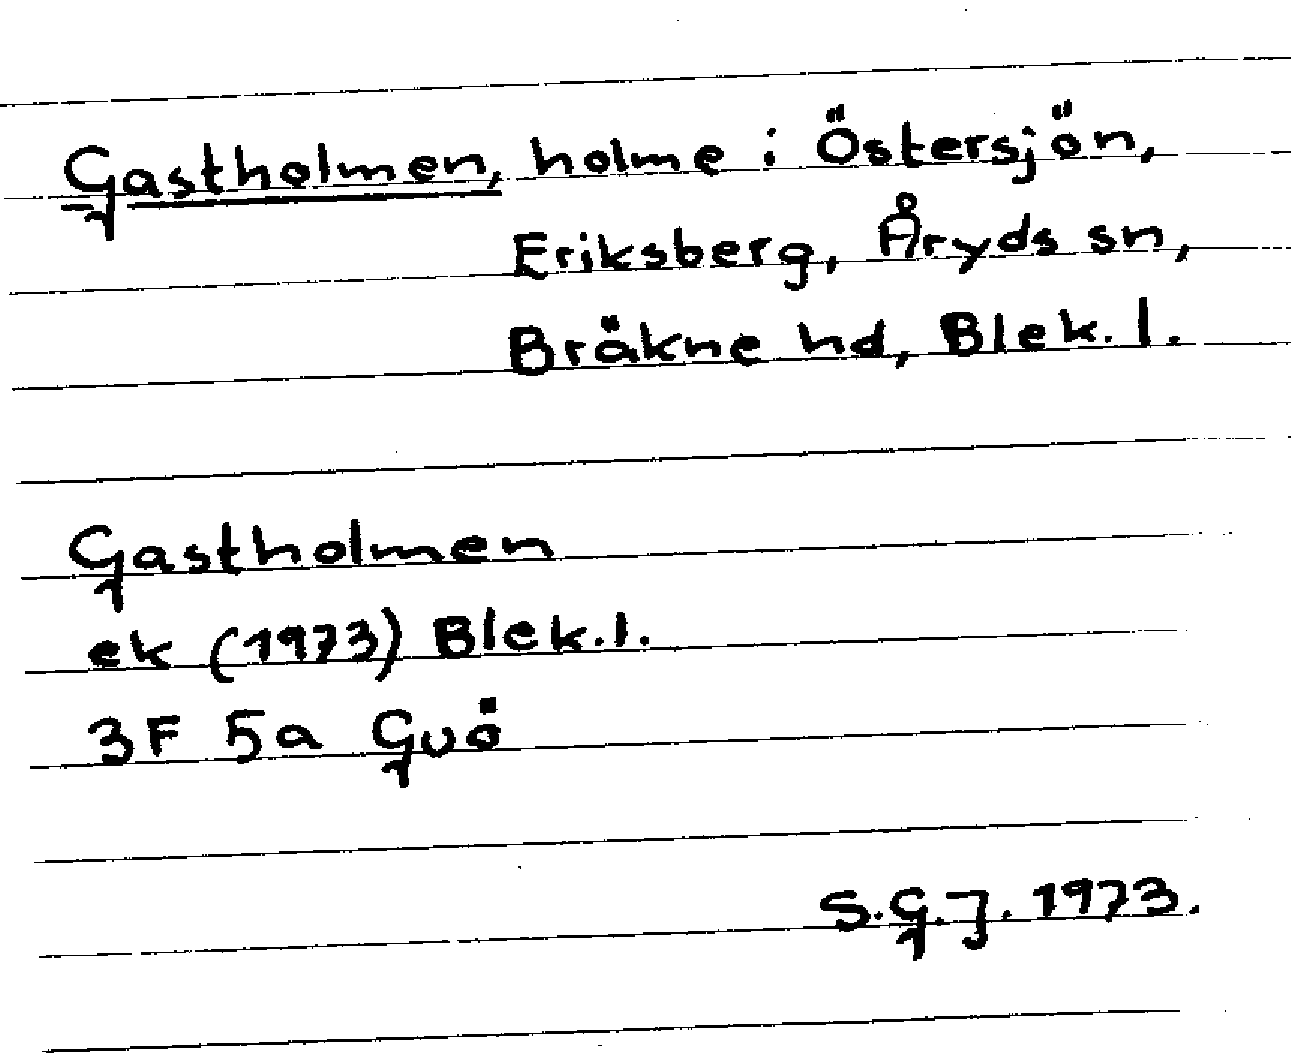 Gastholmen, holme i Östersjön,
Eriksberg, Åryds sn,
Bräkne hd, Blek. l.
Gastholmen
ek (1973) Blek. l.
3F 5a Guö
S.G.J. 1973.